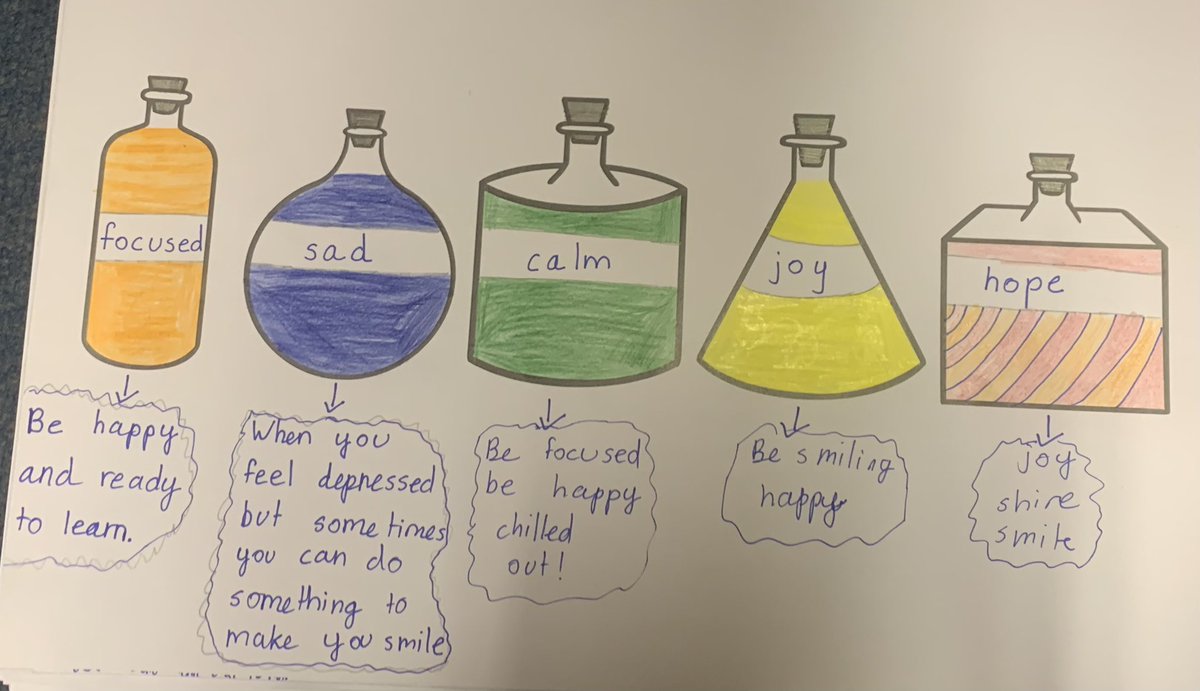 focused
sad
calm
joy
hope
Be happy
and ready
to learn.
When you
feel depressed
but sometimes
you can do
something to
make you smile
Be focused
be happy
chilled
out!
Be smiling
happy
joy
shine
smile